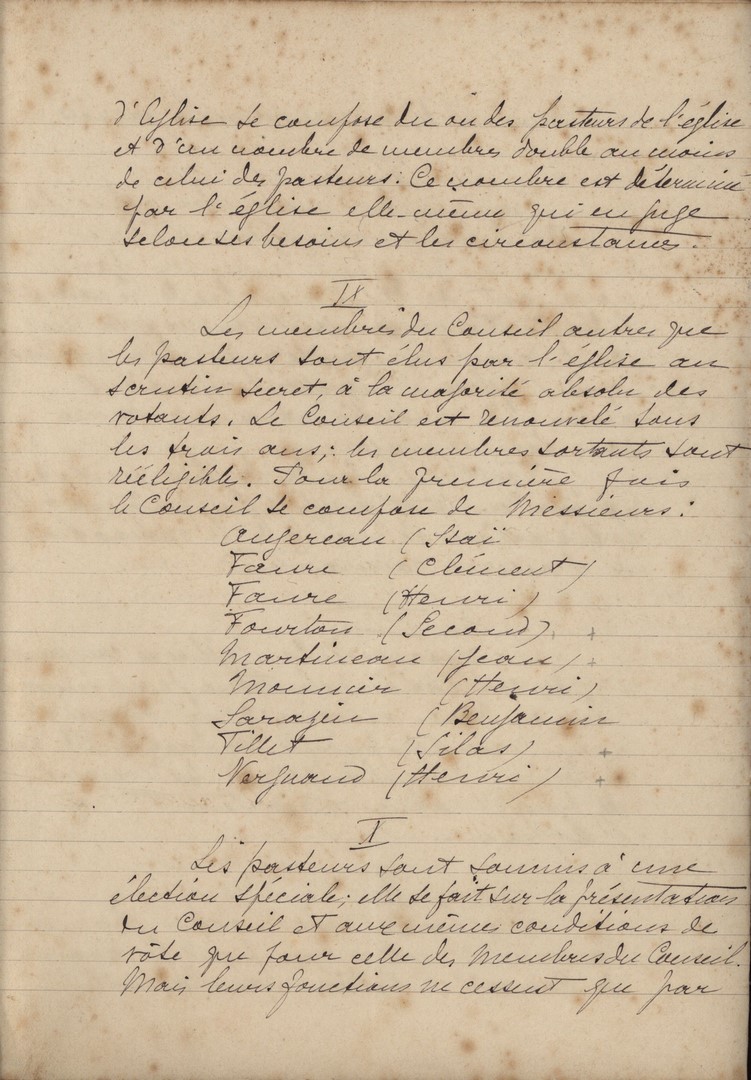 d'Eglise se compose du ou des pasteurs de l'église
et d'un nombre de membres double au moins
de celui des pasteurs. Ce nombre est déterminé
par l'église elle-même qui en juge
selon ses besoins et les circonstances.
IX
Les membres du Conseil autres que
les pasteurs sont élus par l'église au
scrutin secret, à la majorité absolu des
votants. Le Conseil est renouvelé tous
les trois ans; les membres sortants sont
rééligible. Pour la première fois
le Conseil se compose de Messieurs:
Augereau (Isaï
Faure (Clément)
Faure (Henri)
Fourton (Second) +
Martineau (Jean) +
Mounier (Henri)
Sarazin (Benjamin
Tillet (Silas) +
Vergnaud (Henri) +
X
Les pasteurs sont soumis à une
élection spéciale; elle se fait sur la présentation
du Conseil et aux mêmes conditions de
vôte que pour celle des Membres du Conseil.
Mais leurs fonctions ne cessent que par